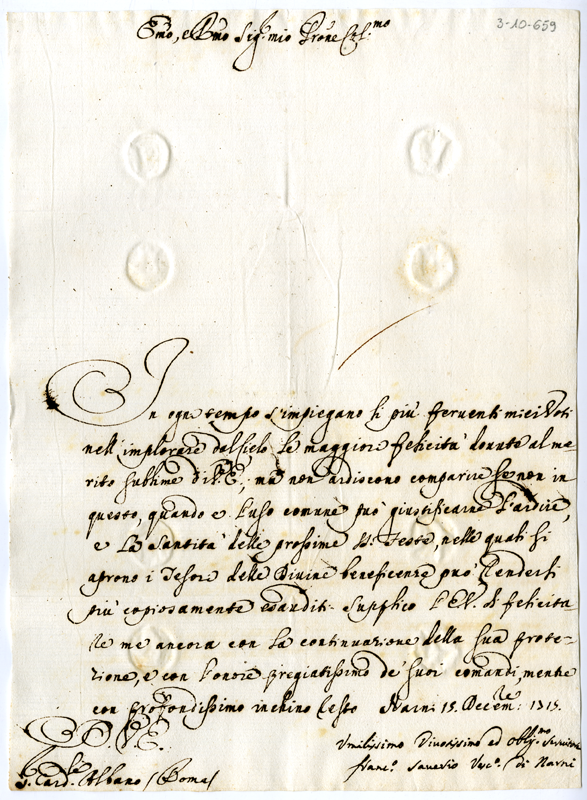 3-10-659
Emo, e Rmo Sig.r mio Prone Col.mo
In ogni tempo s'impiegano li più ferventi miei Voti
nell'implorare dal Cielo le maggiori felicità dovute al me-
rito sublime di V. E., ma non ardiscono comparire se non in
questo, quando e l'uso comune può giustificarne l'ardire,
e la Santità delle prossime S. Feste, nelle quali si
aprono i Tesori delle Divine beneficenze può renderli
più copiosamente esauditi. Supplico l'E.V. di felicita
re me ancora con la continuazione della sua prote-
zione, e con l'onore pregiatissimo de' suoi comandi, mentre
con profondissimo inchino resto Narni 15. Decem.re 1715.
D. V. E.
Umilissimo Divotissimo ed Obbl.mo Servitore
S. Card.le Albano (Roma)
Fran.co Saverio Vesc.o di Narni